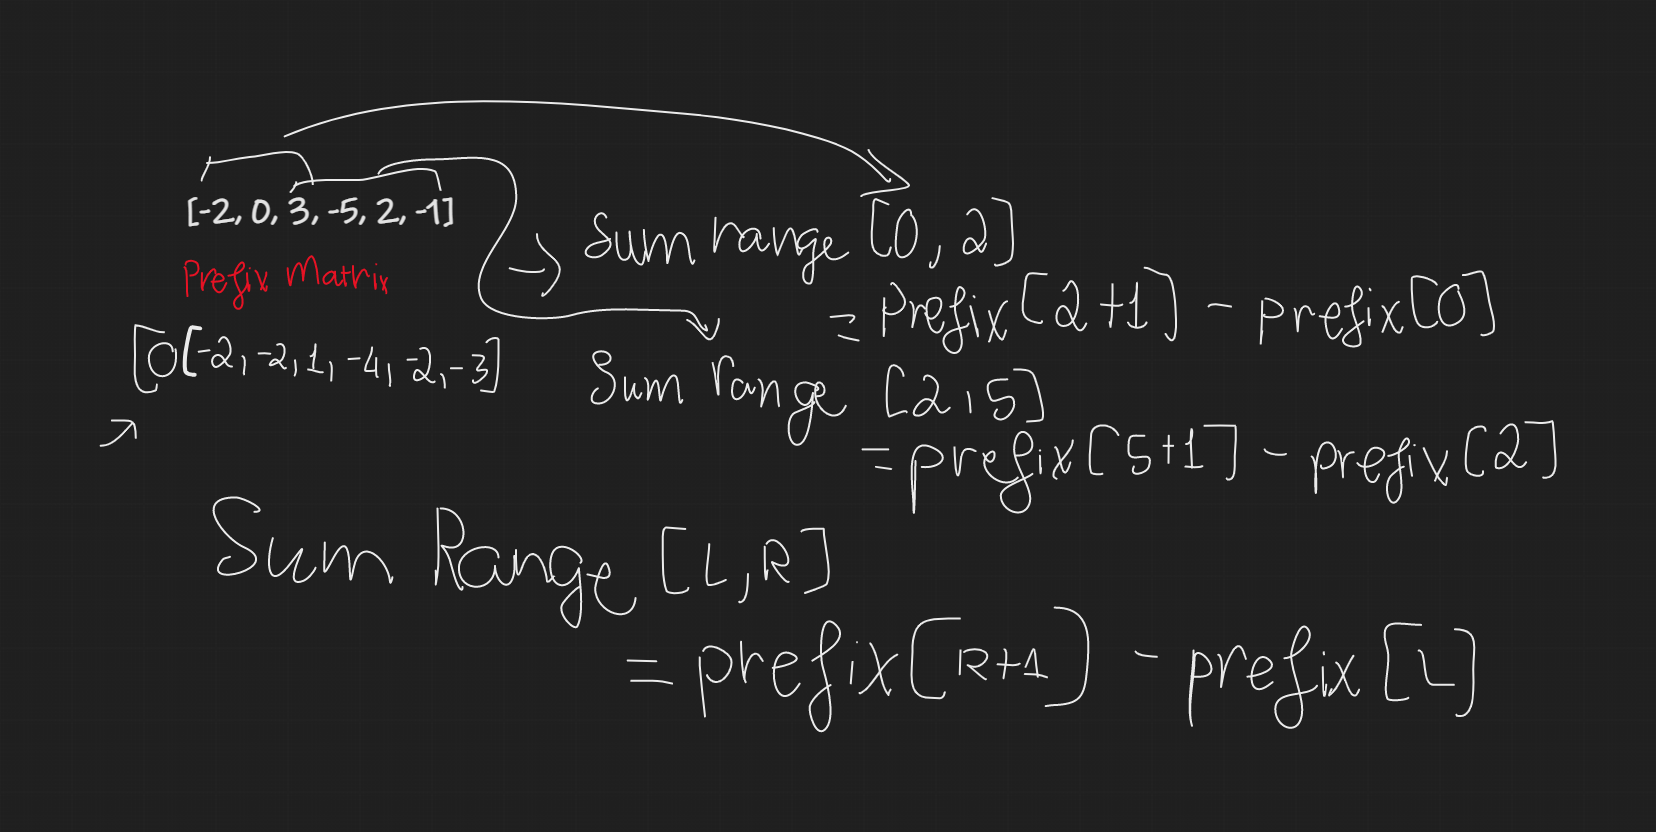 [-2, 0, 3, -5, 2, -1]
Prefix Matrix
[0[-2, -2, 1, -4, -2, -3]
Sum range [0, 2]
= Prefix[2+1] - prefix[0]
Sum range [2, 5]
= prefix[5+1] - prefix[2]
Sum Range [L, R]
= prefix[R+1] - prefix[L]